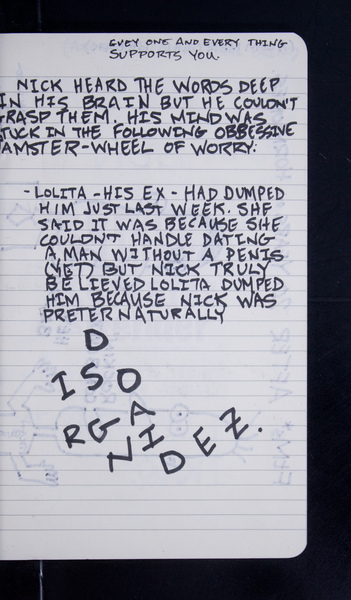 EVEY ONE AND EVERY THING
SUPPORTS YOU.
NICK HEARD THE WORDS DEEP
IN HIS BRAIN BUT HE COULDN'T
GRASP THEM. HIS MIND WAS
TUCK IN THE FOLLOWING OBBESSIVE
AMSTER-WHEEL OF WORRY:
- LOLITA - HIS EX - HAD DUMPED
HIM JUST LAST WEEK. SHE
SAID IT WAS BECAUSE SHE
COULDN'T HANDLE DATING
A MAN WITHOUT A PENIS
(YET) BUT NICK TRULY
BELIEVED LOLITA DUMPED
HIM BECAUSE NICK WAS
PRETERNATURALLY
D
ISO
RGA
NI
DEZ.